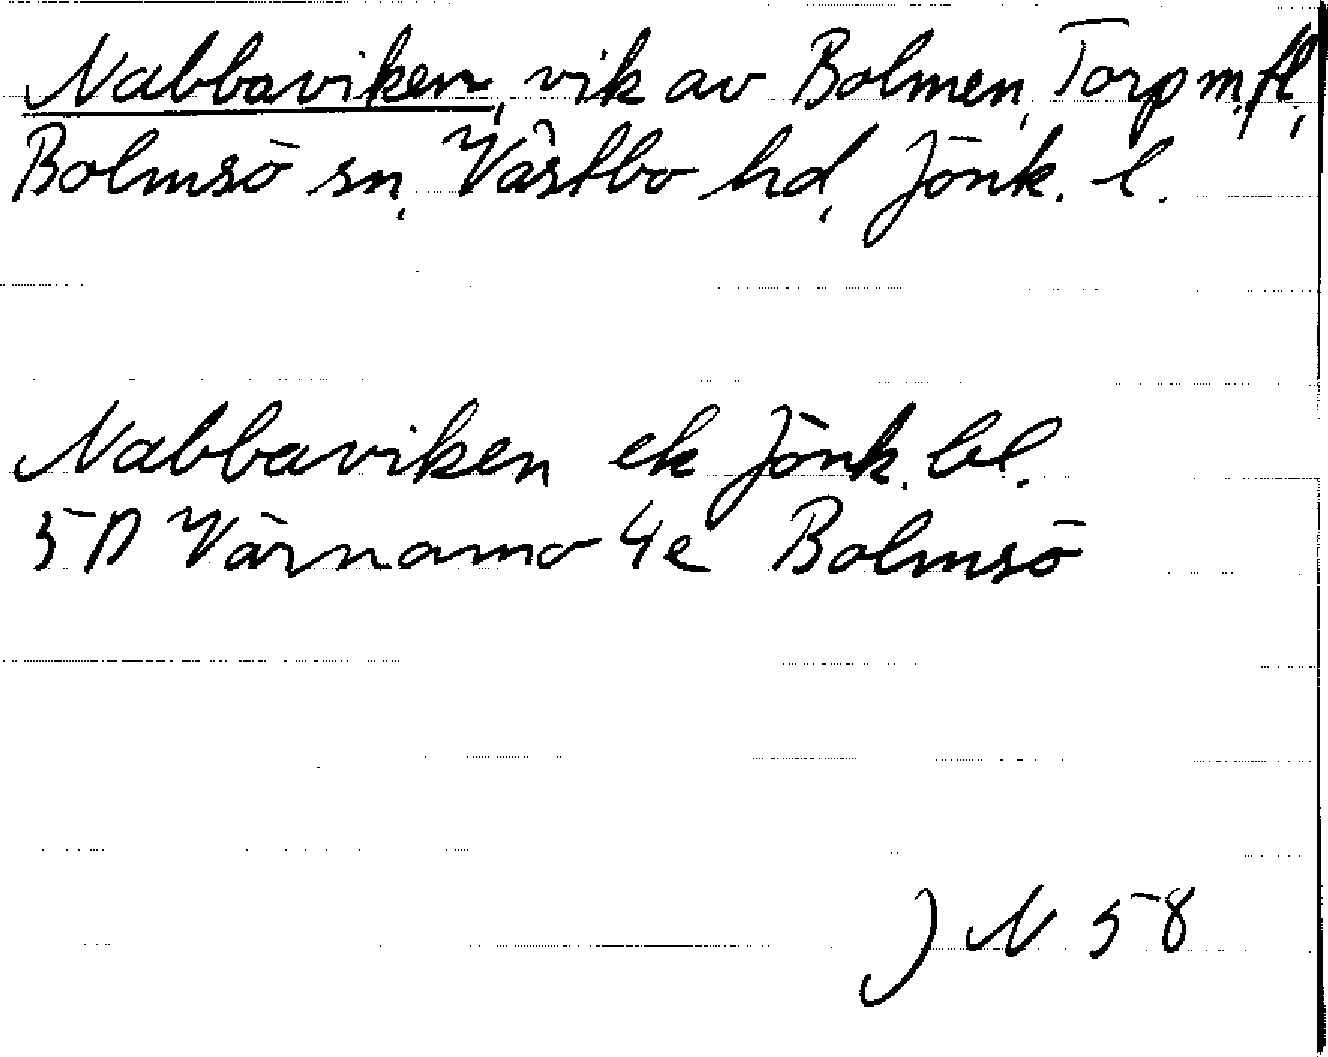 Nabbaviken, vik av Bolmen, Torp m.fl.,
Bolmsö sn, Västbo hd, Jönk. l.
Nabbaviken ek Jönk. bl.
5D Värnamo 4e Bolmsö
JN 58